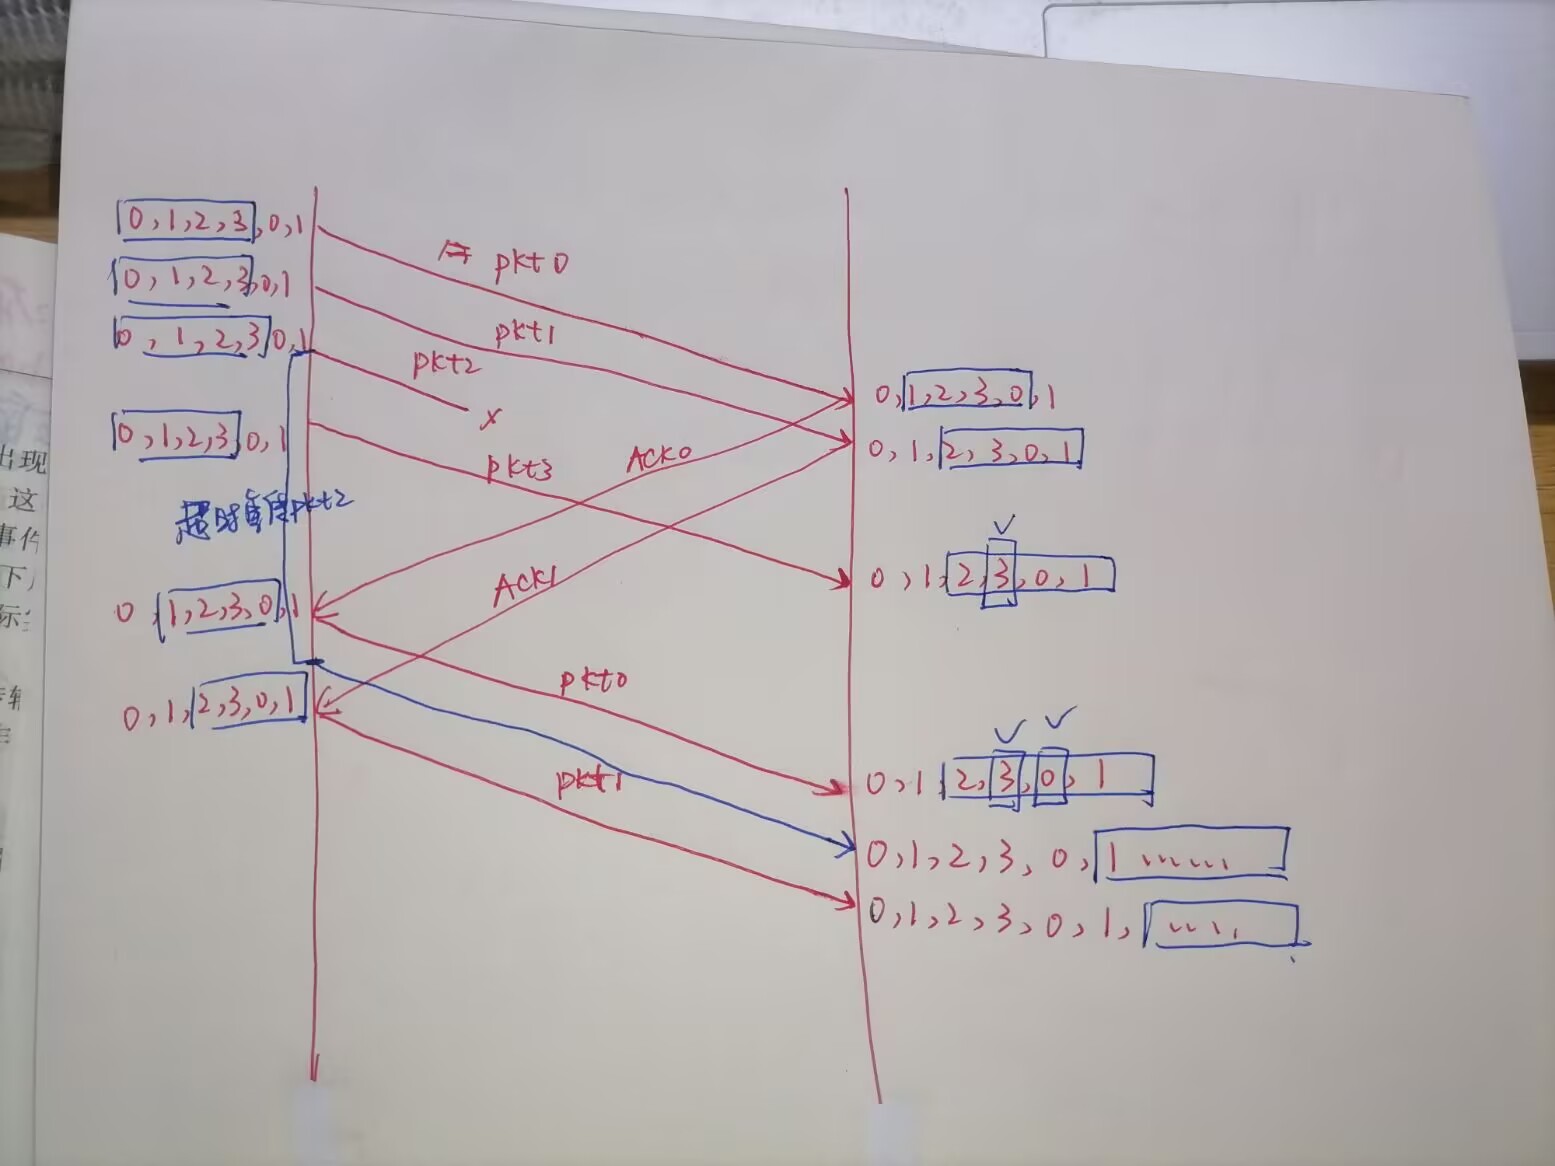 0,1,2,3,0,1
pkt0
0,1,2,3,0,1
pkt1
0,1,2,3,0,1
pkt2
x
0,1,2,3,0,1
pkt3
ACK0
0,1,2,3,0,1
0,1,2,3,0,1
超时重传pkt2
ACK1
0,1,2,3,0,1
0,1,2,3,0,1
pkt0
0,1,2,3,0,1
pkt1
0,1,2,3,0,1
0,1,2,3,0,1......
0,1,2,3,0,1,.....
出现
这
事件
下
际